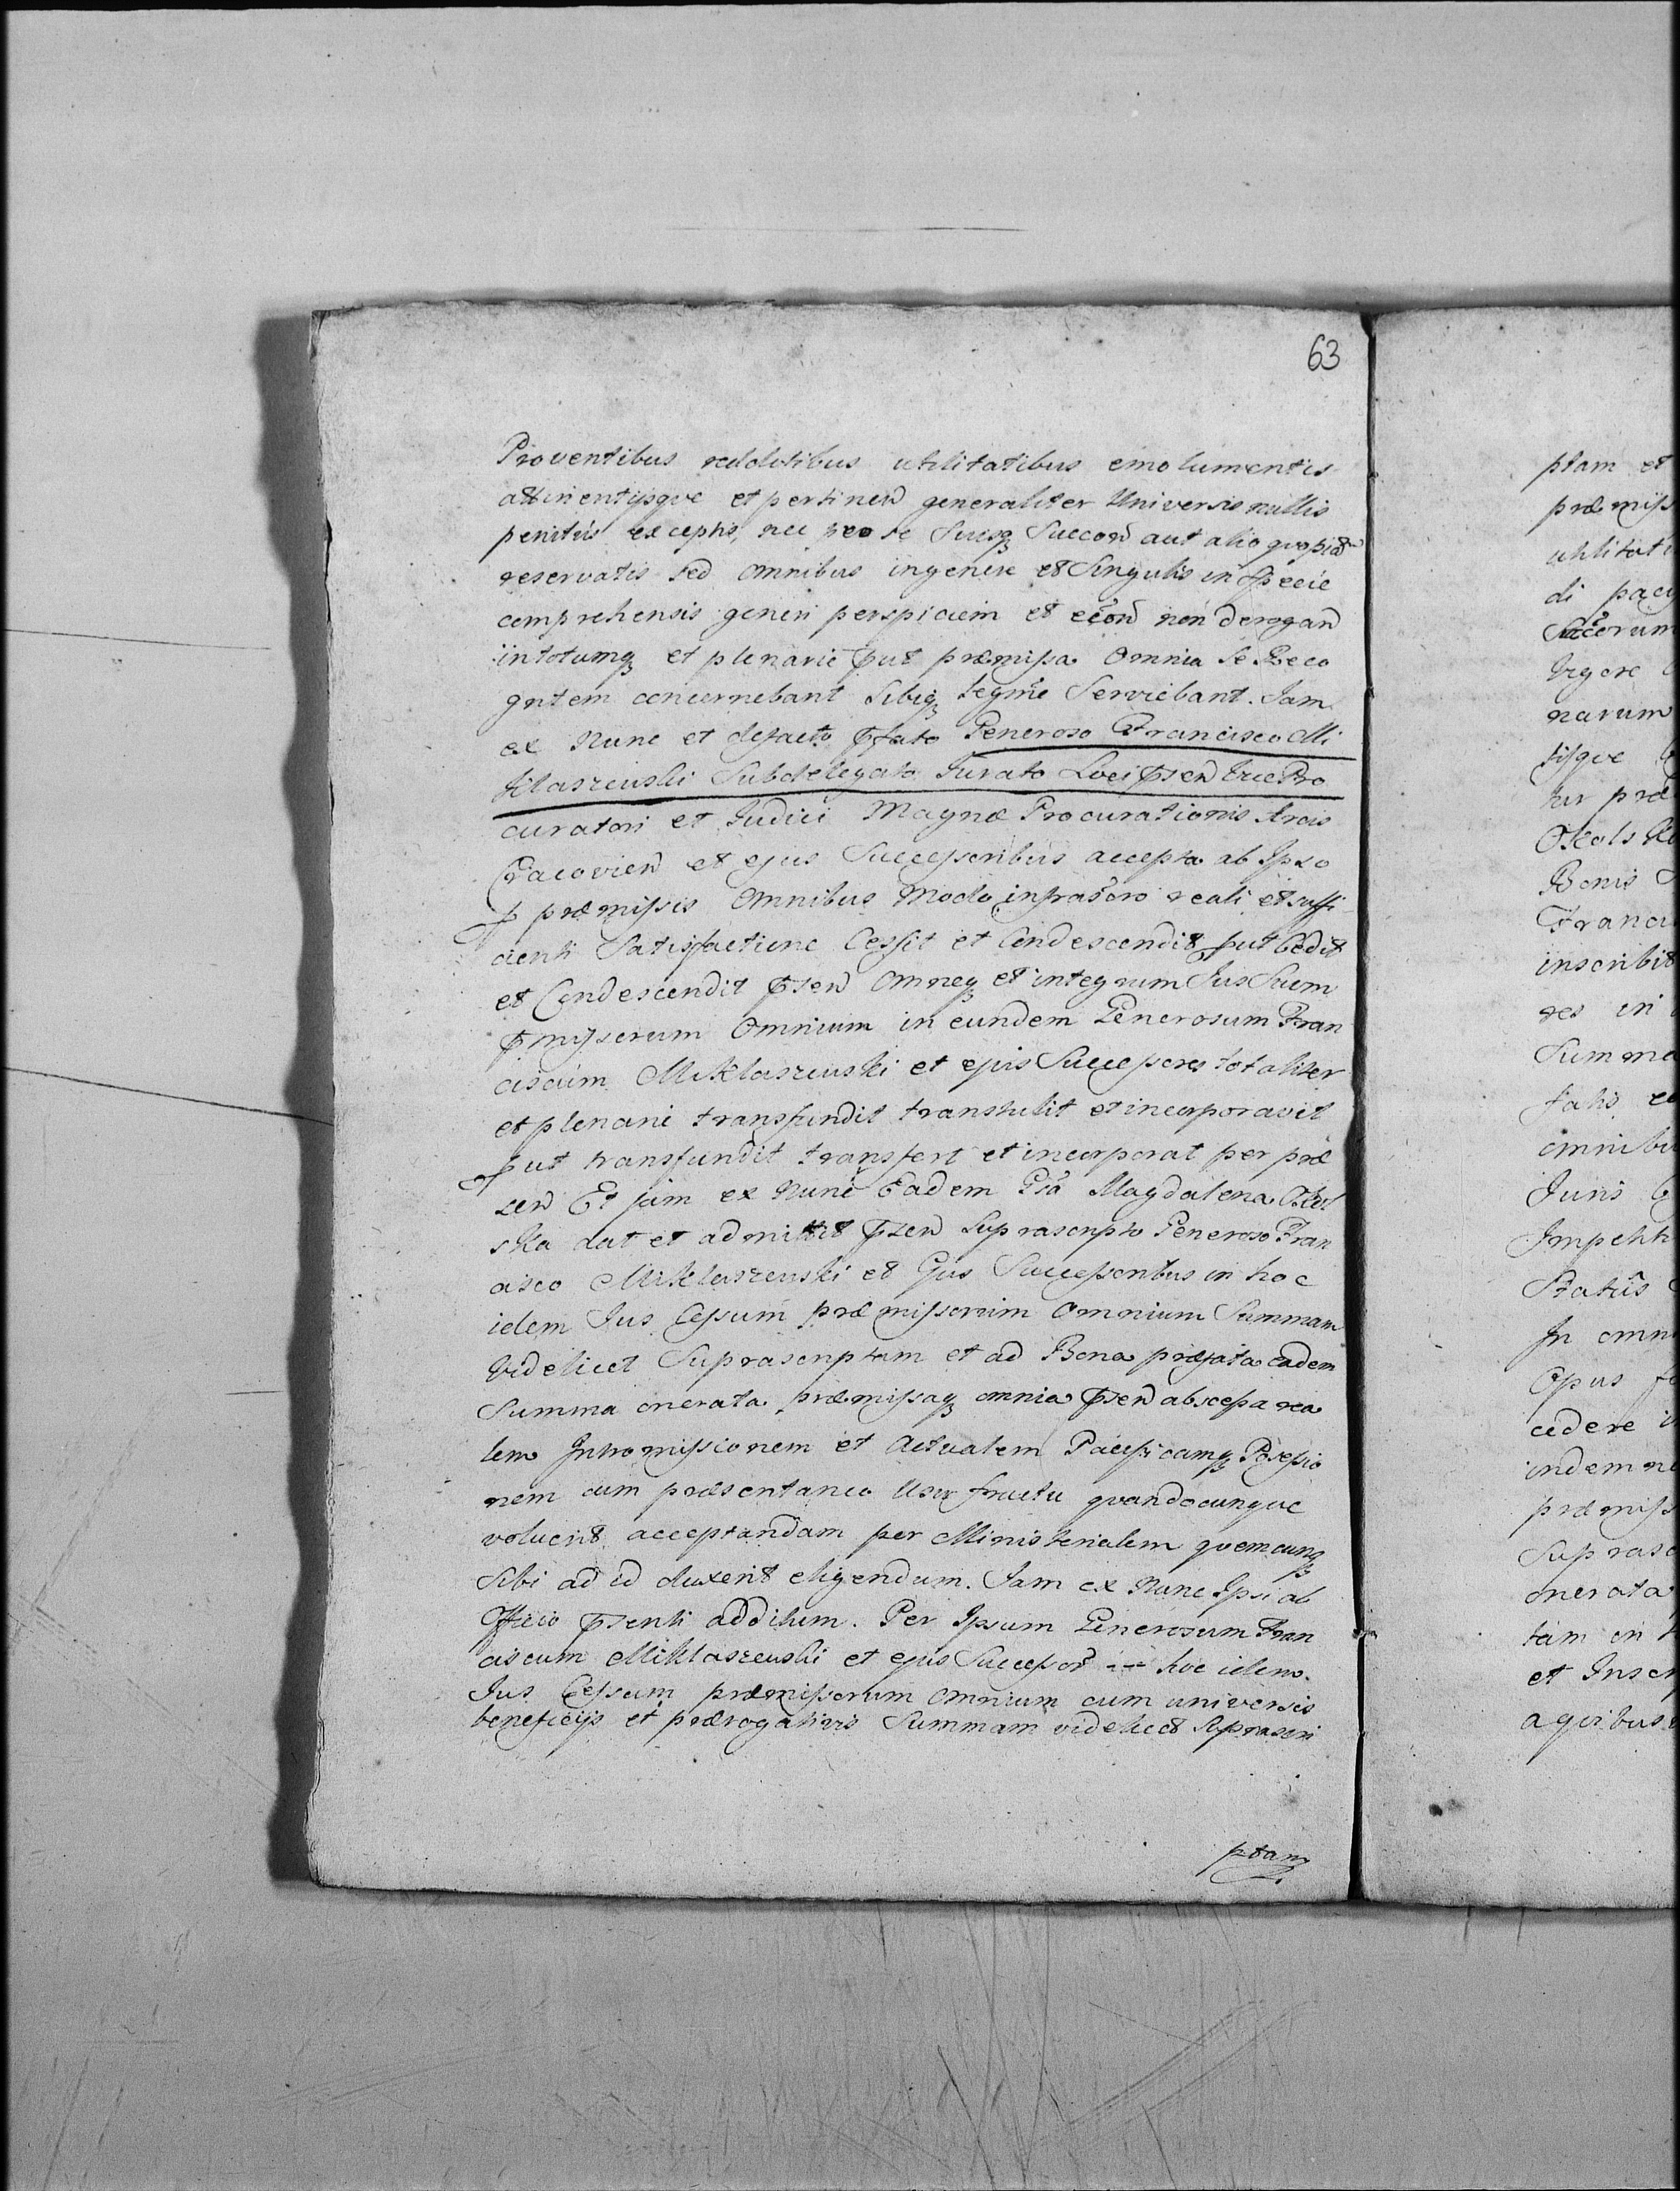 63
Proventibus redditibus utilitatibus emolumentis
attinentijsque et pertinen generaliter Universis nullis
penitus exceptis, nec pro se suisq Succon aut alio quopiam
reservatis sed omnibus ingenere et Singulis in Specie
comprehensis generi perspiciem et econ non derogan
intotumq et plenarie put præmissa Omnia Se Reco
gntem concernebant Sibiq legme Serviebant. Jam
ex Nunc et defacto pfato Generoso Francisco Mi
klaszewski Subdelegato Jurato Loci psen Vice Pro
curatori et Judici Magnæ Procurationis Arcis
Cracovien et ejus Successoribus accepta ab Ipso
p præmissis Omnibus modo infrascro reali et suffi
cienti Satisfactione Cessit et Condescendit put Cedit
et Condescendit psen Omneq et integrum Jus Suum
pmissorum Omnium in eundem Generosum Fran
ciscum Miklaszewski et ejus Successores totaliter
et plenarie transfundit transtulit et incorporavit
put transfundit transfert et incorporat per præ
sen Et jam ex nunc Eadem Gsa Magdalena Okol
ska dat et admittit psen Suprascripto Generoso Fran
cisco Miklaszewski et Ejus Successoribus in hoc
idem Jus Cessum præmissorum Omnium Summam
Videlicet Suprascriptam et ad Bona præfata eadem
Summa onerata præmissaq omnia psen abscessa rea
lem Intromissionem et Actualem Pacificamq Possessio
nem cum præsentaneo Usu fructu quandocunque
voluerit acceptandam per Ministerialem quemcunq
Sibi ad id duxerit eligendum. Jam ex Nunc Ipsi ab
Officio psenti additum. Per Ipsum Generosum Fran
ciscum Miklaszewski et ejus Successor hoc idem
Jus Cessum præmissorum Omnium cum universis
beneficijs et prærogativis Summam videlicet Suprascri
ptam
ptam et
præmiss
utilitati
di paci
Succorum
Vigore
narum
tisque
Jur præ
Okolsk
Bonis
Franci
inscribit
res in
Summa
omnibu
Juris
Impetit
Status
In omn
Opus
cedere
indemne
præmiss
Suprasc
onerata
tam in
et Inscr
aquibus